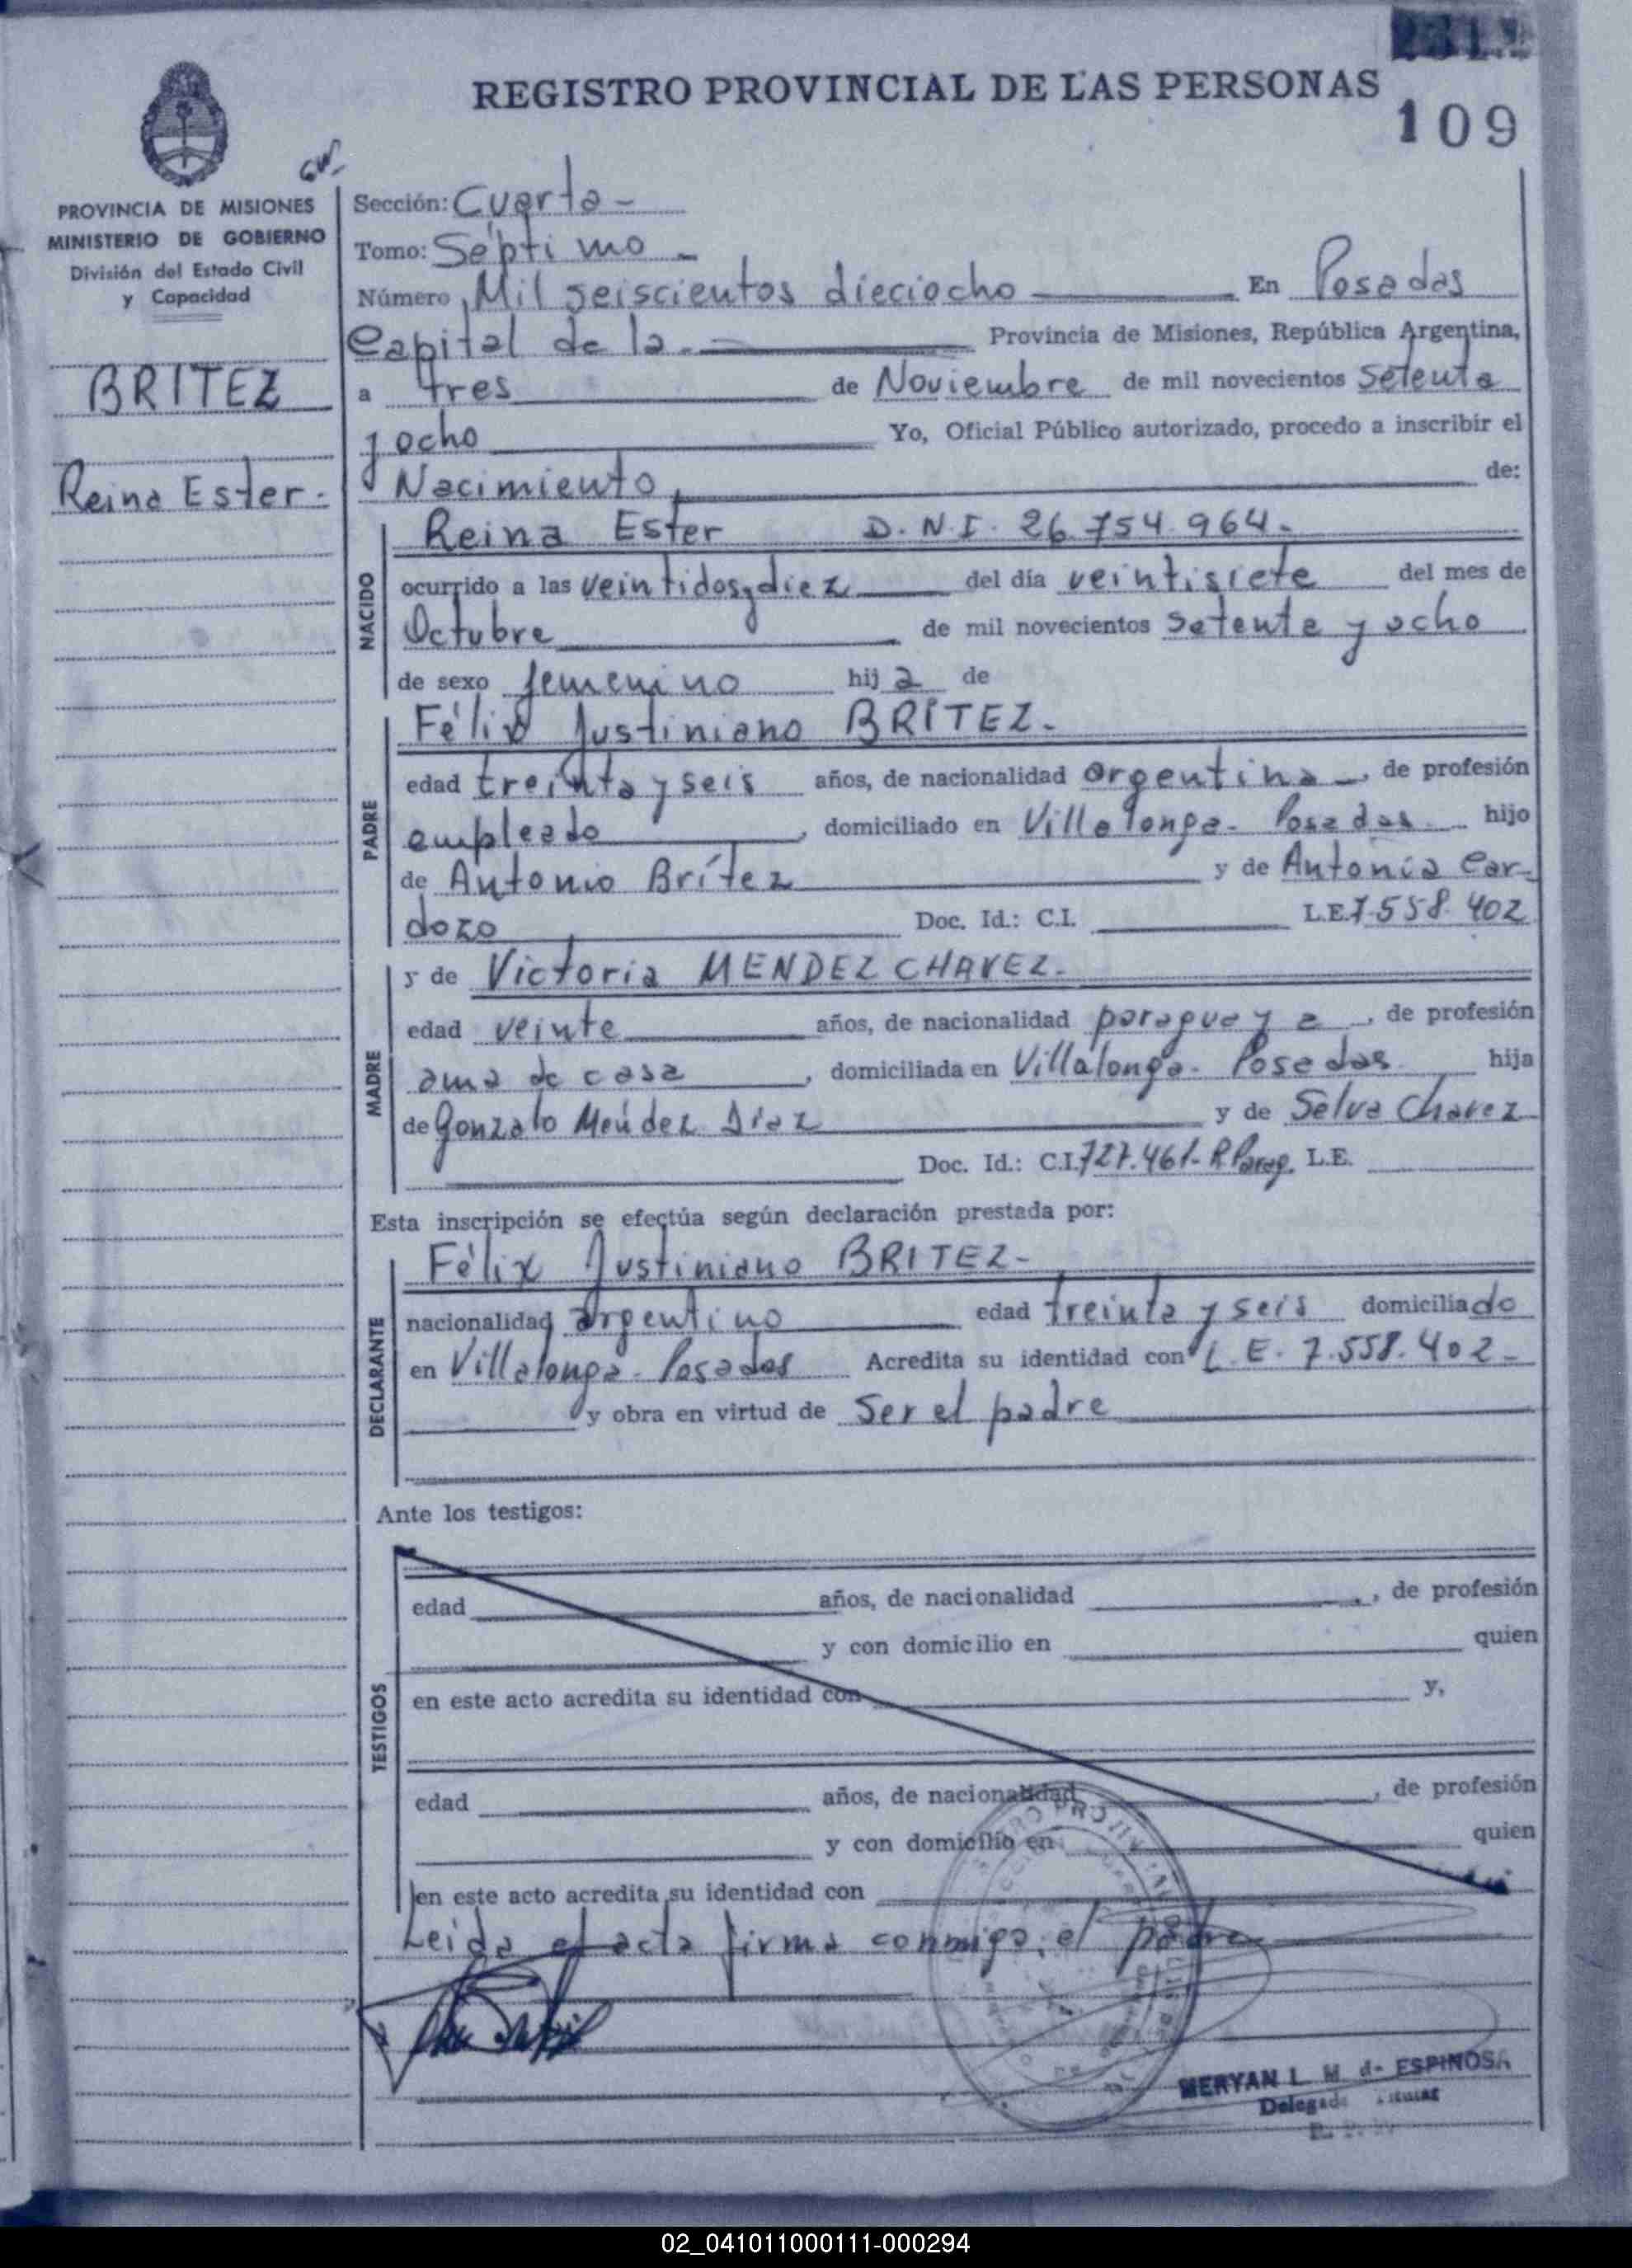 REGISTRO PROVINCIAL DE LAS PERSONAS
109
PROVINCIA DE MISIONES
MINISTERIO DE GOBIERNO
División del Estado Civil
y Capacidad
BRITEZ
Reina Ester.
Sección: Cuarta -
Tomo: Séptimo -
Número Mil seiscientos dieciocho En Posadas
Capital de la. Provincia de Misiones, República Argentina,
a tres de Noviembre de mil novecientos setenta
y ocho Yo, Oficial Público autorizado, procedo a inscribir el
Nacimiento, de:
NACIDO
Reina Ester D.N.I. 26.754.964.
ocurrido a las veintidos y diez del día veintisiete del mes de
Octubre de mil novecientos setenta y ocho
de sexo femenino hija de
PADRE
Félix Justiniano BRÍTEZ.
edad treinta y seis años, de nacionalidad argentina, de profesión
empleado, domiciliado en Villalonga - Posadas hijo
de Antonio Brítez y de Antonia Car-
dozo Doc. Id.: C.I. L.E. 7.558.402
MADRE
y de Victoria MENDEZ CHAVEZ.
edad veinte años, de nacionalidad paraguaya, de profesión
ama de casa, domiciliada en Villalonga - Posadas hija
de Gonzalo Méndez Diaz y de Selva Chavez
Doc. Id.: C.I. 727.461 - R. Parag. L.E.
Esta inscripción se efectúa según declaración prestada por:
DECLARANTE
Félix Justiniano BRITEZ-
nacionalidad argentino edad treinta y seis domiciliado
en Villalonga - Posadas Acredita su identidad con L.E. 7.558.402-
y obra en virtud de ser el padre
Ante los testigos:
TESTIGOS
edad años, de nacionalidad , de profesión
y con domicilio en quien
en este acto acredita su identidad con y,
edad años, de nacionalidad , de profesión
y con domicilio en quien
en este acto acredita su identidad con
Leida el acta firma conmigo, el padre
MERYAN L. M. de ESPINOSA
Delegada Titular
02_041011000111-000294